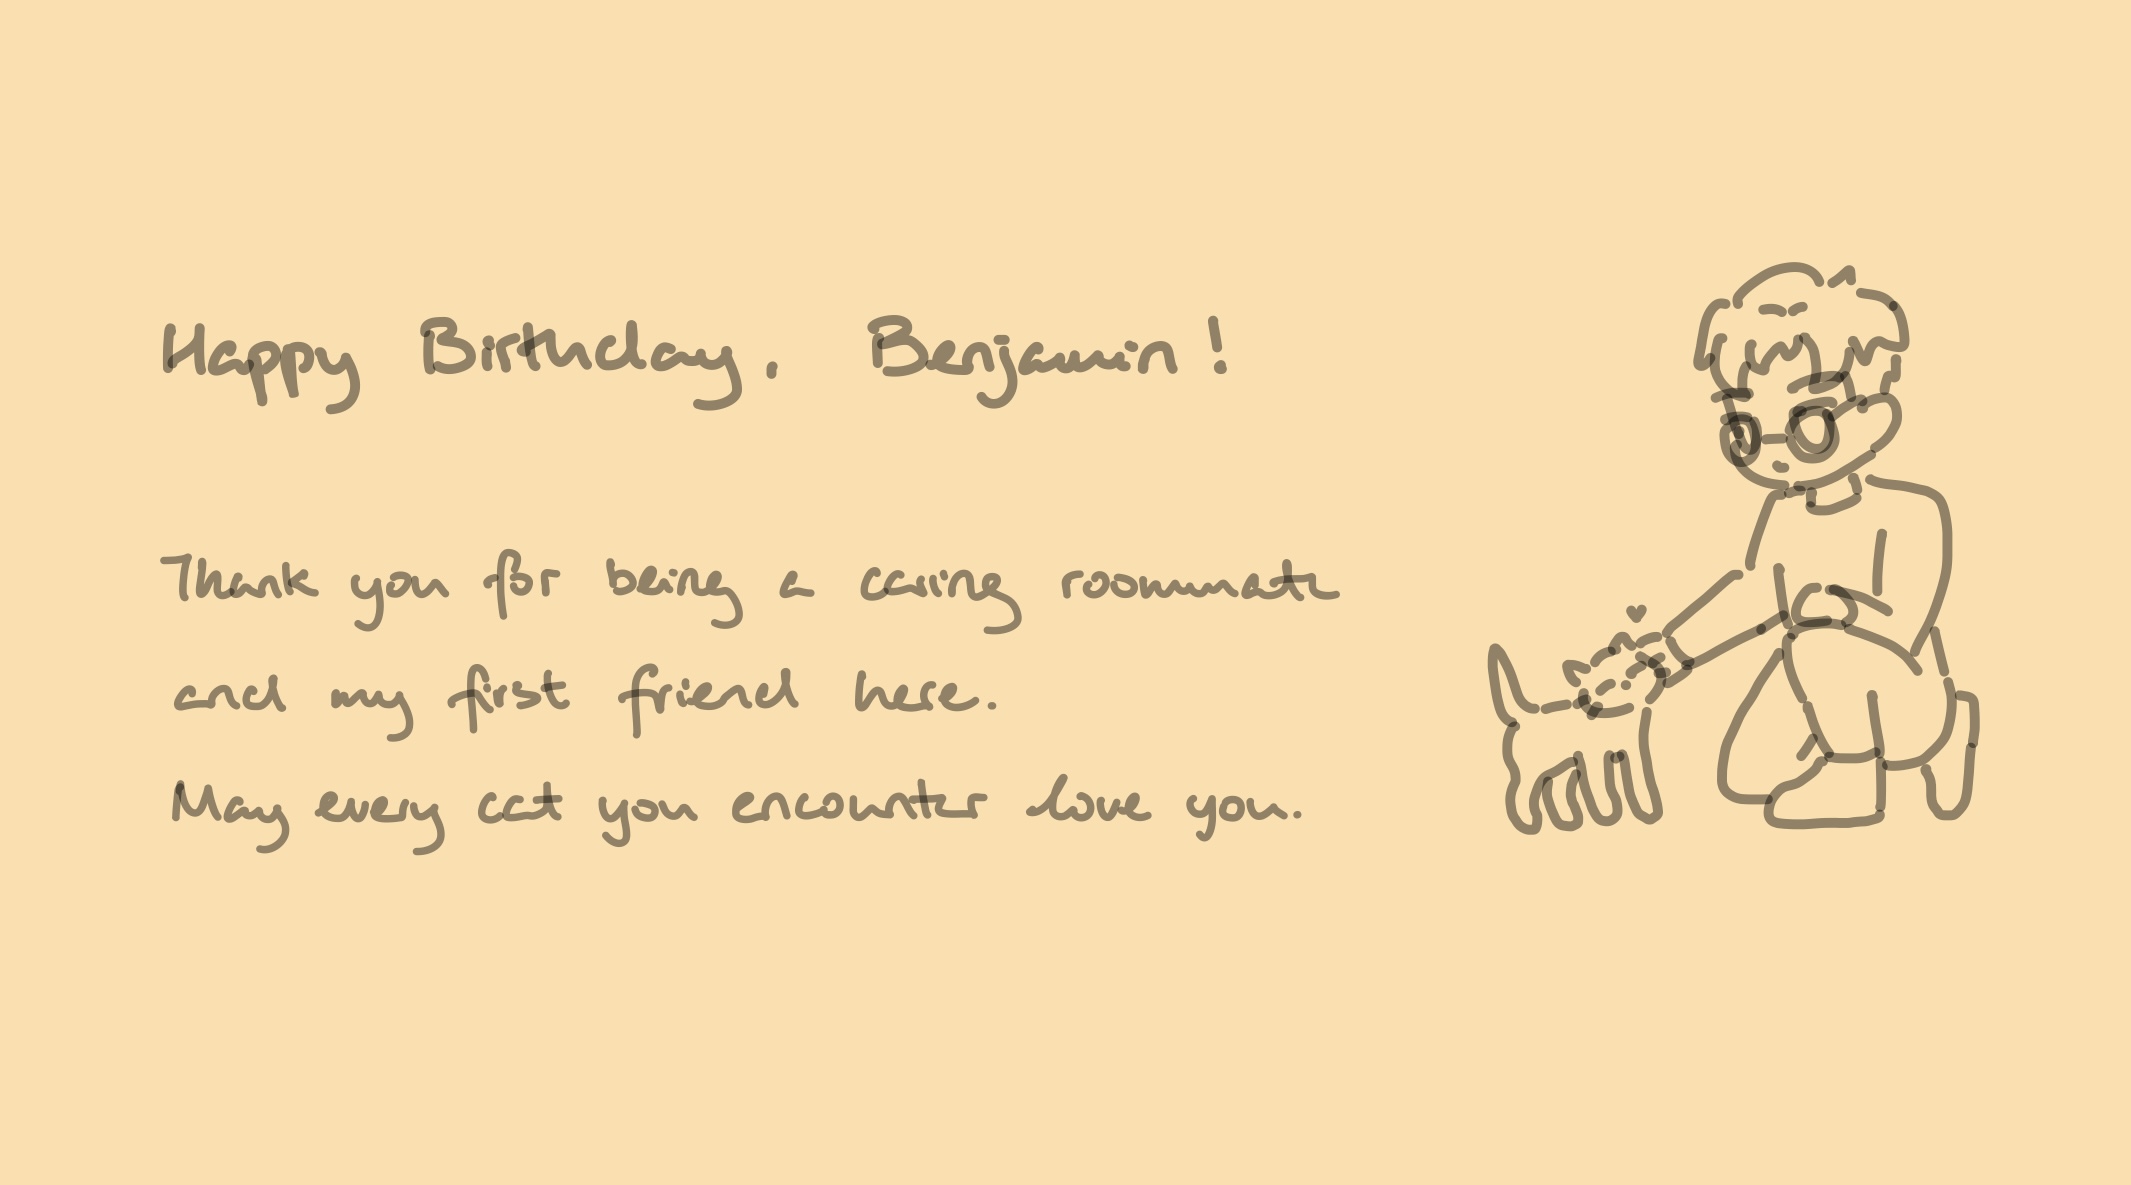 Happy Birthday, Benjamin!
Thank you for being a caring roommate
and my first friend here.
May every cat you encounter love you.